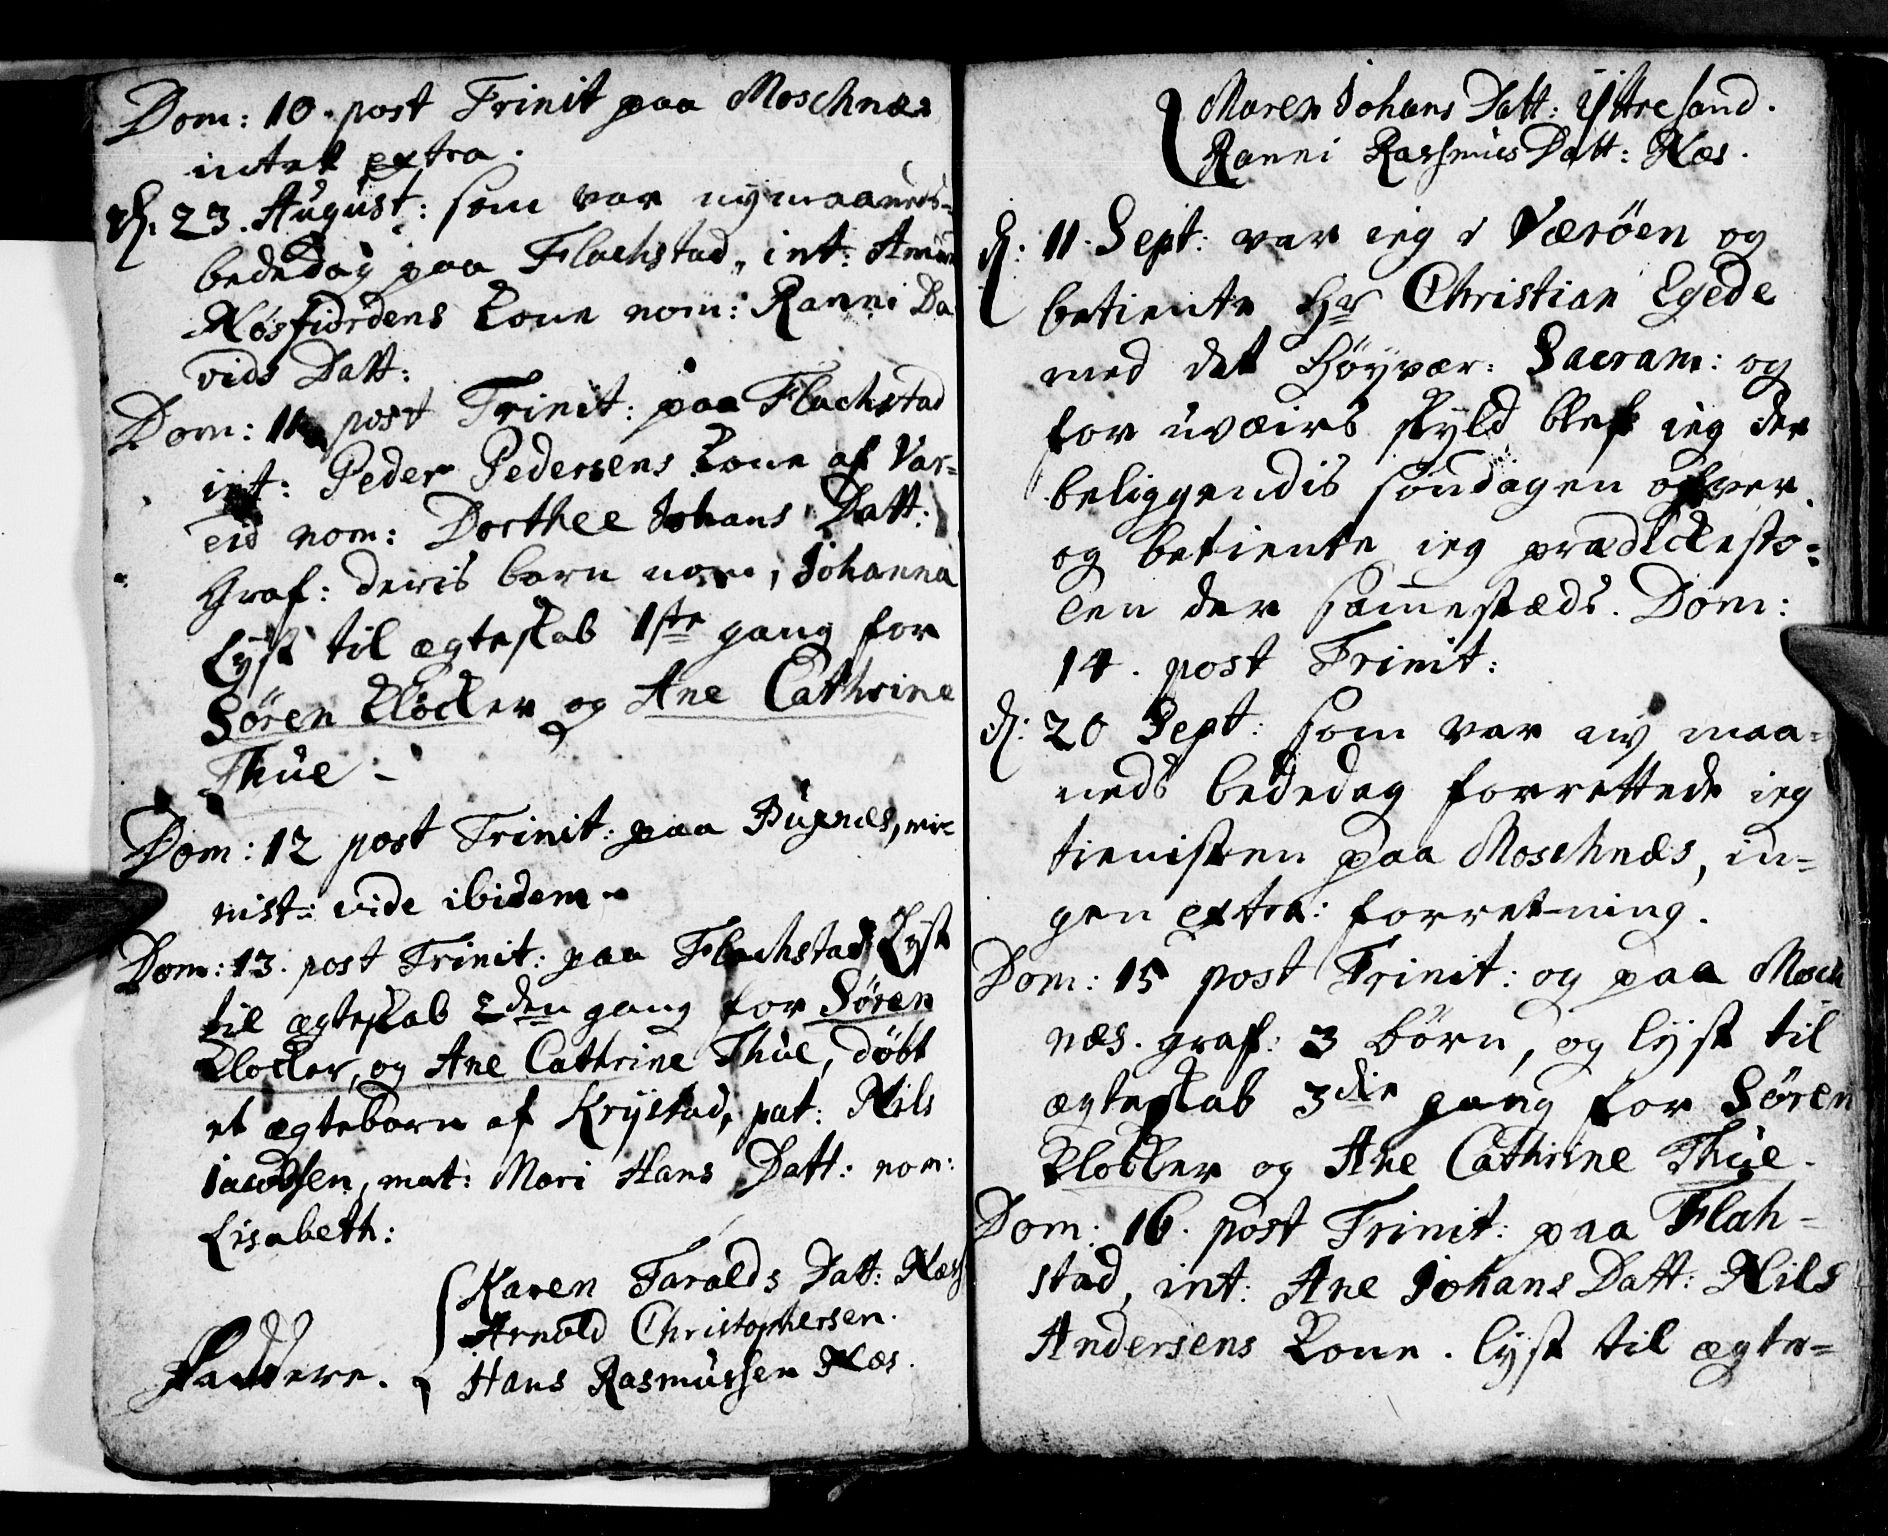 Dom: 10. post Trinit paa Moschnæs
intet extra.
d: 23. August: som var nymaaneds-
bededag paa Flachstad, int: Amun
Nøsfiordens Kone nom: Ranni Da
vids Datt:
Dom: 11 post Trinit: paa Flachstad
int: Peder Pedersens Kone af Var=
eid nom: Dorthee Johans Datt:
Graf: deris barn nom, Johanna
Lyst til ægteskab 1ste gang for
Søren Klocker og Ane Cathrine
Thüe -
Dom: 12 post Trinit: paa Buxnæs, mi
nist: vide ibidem -
Dom: 13. post Trinit: paa Flachstad Lyst
til ægteskab 2den gang for Søren
Klocker, og Ane Cathrine Thüe, døbt
et ægtebarn af Krystad, pat: Nils
Jacobsen, mat: Mari Hans Datt: nom:
Lisabeth:
Karen Faralds Datt: Næss
Arnold Christophersen.
Faddere. Hans Rasmussen Næs.
Maren Johans Datt: Yttresand.
Ranni Rasmus Datt: Næs.
d: 11. Sept: var ieg i Værøen og
betiente Hr Christian Egede
med det Høyvær: Sacram: og
for uvæirs skyld blef ieg der
beliggendis søndagen ofver
og betiente ieg prædickesto=
len der sammestæds. Dom:
14. post Trinit:
d: 20 Sept: som var ny maa=
neds bededag forrettede ieg
tienisten paa Moschnæs, in=
gen extra: forretning.
Dom: 15 post Trinit: og paa Mosch
næs. graf: 3 börn, og lyst til
ægteskab 3die gang for Søren
Klocker og Ane Cathrine Thüe.
Dom: 16. post Trinit: paa Flah-
stad, int: Ane Johans Datt: Nils
Andersens Kone. lyst til ægte=